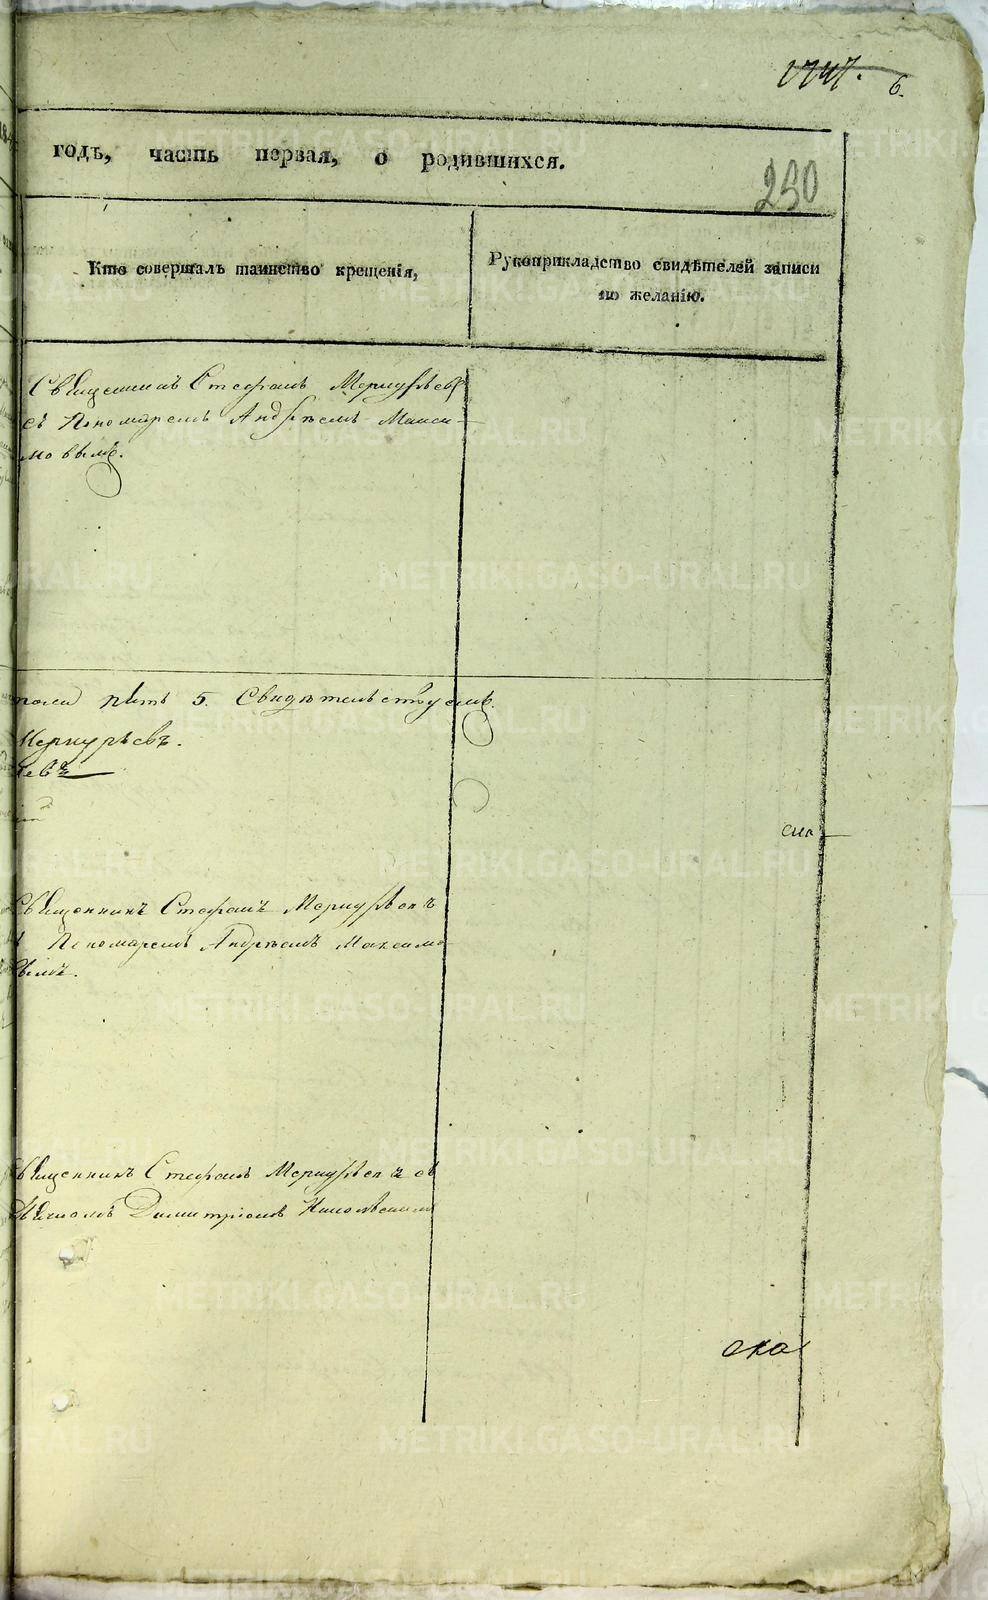 6.
годъ, часть первая, о родившихся.
230
Кто совершалъ таинство крещенія,
Рукоприкладство свидѣтелей записи
по желанію.
Священникъ Стефанъ Меркурьевъ
съ Пономаремъ Андреемъ Макси-
мовымъ.
пять 5. Свидѣтельствуемъ.
Меркурьевъ.
Священникъ Стефанъ Меркурьевъ
Пономаремъ Андреемъ Максимо
вымъ.
Священникъ Стефанъ Меркурьевъ съ
Дьячкомъ Димитріемъ
METRIKI.GASO-URAL.RU